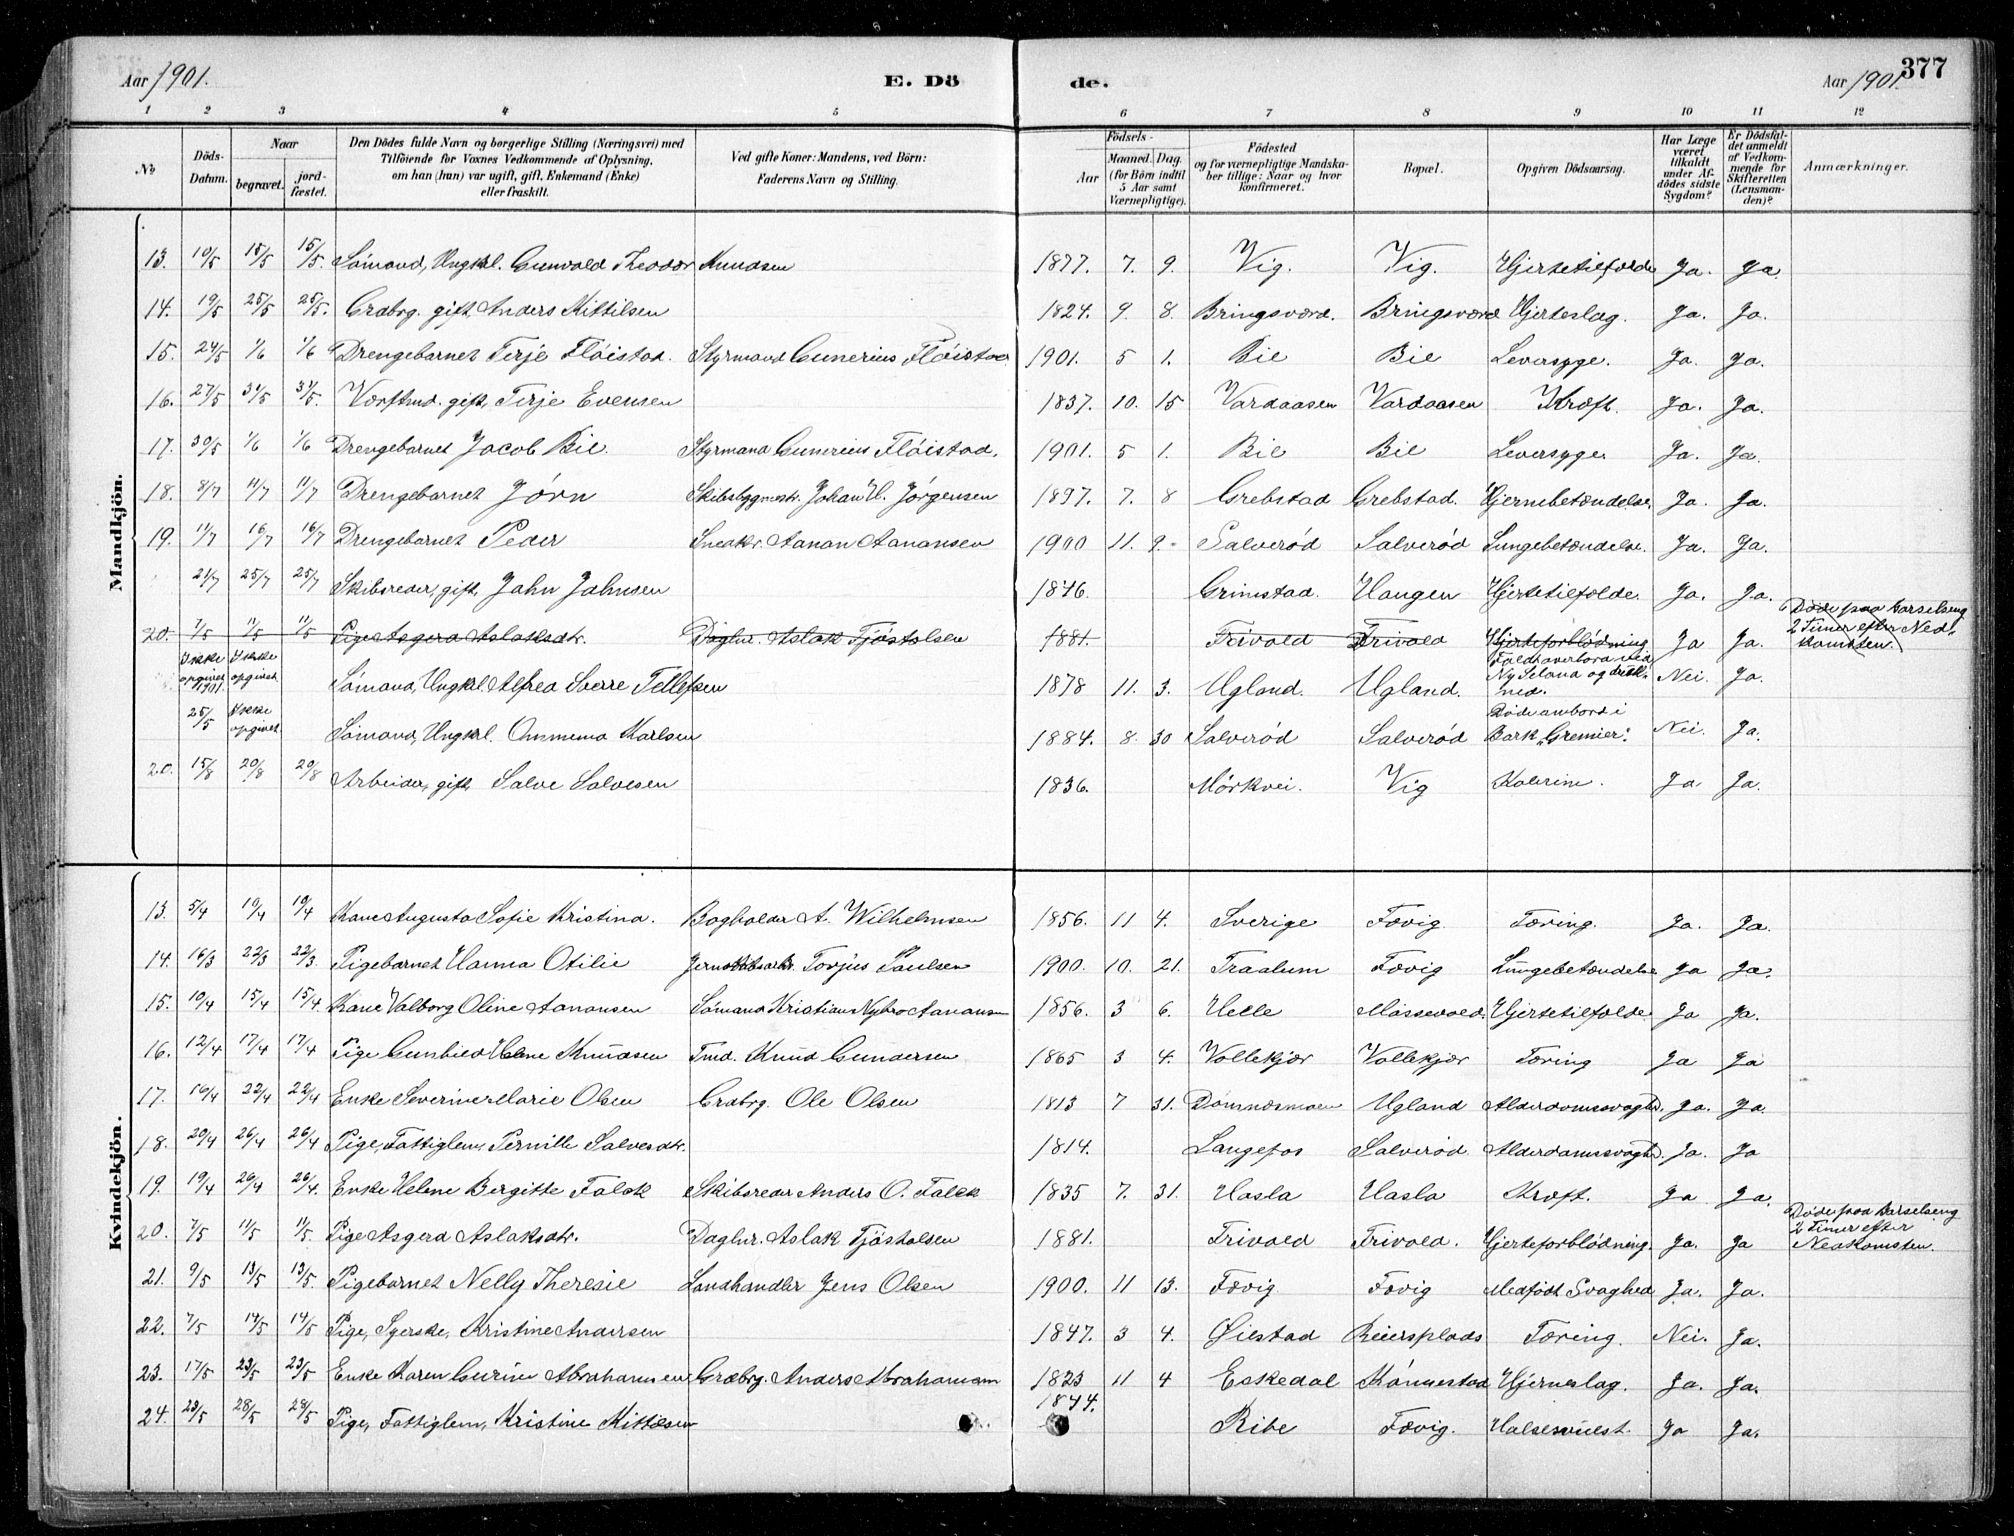 Aar 1901.
E. Dö
de.
Aar 1901.
377
1 2 3 4 5 6 7 8 9 10 11 12
No
Döds-Datum.
Naar
begravet.
jord-fæstet.
Den Dödes fulde Navn og borgerlige Stilling (Næringsvei) med
Tilföiende for Voxnes Vedkommende af Oplysning,
om han (hun) var ugift, gift, Enkemand (Enke)
eller fraskilt.
Ved gifte Koner: Mandens, ved Börn:
Faderens Navn og Stilling.
Födsels-
Aar
Maaned. Dag.
(for Börn indtil
5 Aar samt
Værnepligtige).
Födested
og for værnepligtige Mandska-
ber tillige: Naar og hvor
konfirmeret.
Bopæl.
Opgiven Dödsaarsag.
Har Læge
været
tilkaldt
under Af-
dödes sidste
Sygdom?
Er Dödsfal-
det anmeldt
af Vedkom-
mende for
Skifteretten
(Lensman-
den)?
Anmærkninger.
Mandkjön.
13. 10/5 15/5 15/5. Sömand, Ungkl. Gunvald Theodor Knudsen 1877. 7. 9. Vig. Vig. Hjertetilfælde Ja. Ja.
14. 19/5 25/5 25/5. Grdbrg. gift, Anders Kittilsen 1824. 9. 8. Bringsværd. Bringsværd Hjerteslag. Ja. Ja.
15. 24/5 1/6 1/6 Drengebarnet Terje Flöistad. Styrmand Gunerius Flöistad 1901. 5 1. Bie Bie Leversyge. Ja. Ja.
16. 27/5 31/5 31/5. Værftmd. gift, Terje Evensen 1837. 10. 15 Vardaasen Vardaasen Kræft. Ja. Ja.
17. 30/5 1/6 1/6 Drengebarnet Jacob Bie. Styrmand Gunerius Flöistad. 1901. 5 1. Bie Bie Leversyge Ja. Ja.
18. 8/7 11/7 11/7 Drengebarnet Jörn Skibsbygmestr. Johan H. Jörgensen 1897. 7. 8 Grebstad Grebstad. Hjernebetændelse. Ja. Ja.
19. 11/7 16/7 16/7 Drengebarnet Peder Snedkr. Aanan Aanansen 1900 11. 9. Salveröd Salveröd Lungebetændelse. Ja. Ja.
21/7 25/7 25/7 Skibsreder, gift, John Johnsen 1846. Grimstad. Haugen Hjertetilfælde. Ja. Ja.
20. 7/5 11/5 11/5 Pige Asgerd Aslaksdtr. Daglnr. Aslak Tjöstolsen 1881. Trivold Trivold Hjerteforblödning Ja Ja. Döde paa Barselseng
2 Timer efter Ned-
komsten.
Ikke opgivet 1901. Ikke opgivet. Sömand, Ungkl. Alfred Sverre Tellefsen 1878 11. 3. Ugland. Ugland. Faldt overbord ved
Ny Seland og drukned. Nei. Ja.
25/5 Ikke opgivet Sömand, Ungkl. Karlsen 1884. 8. 30 Salveröd Salveröd Döde ombord i
Bark "Gremier". Nei. Ja.
20. 15/8 20/8 20/8 Arbeider, gift, Salve Salvesen 1836. Mörkvei. Vig Kolerine. Ja. Ja.
Kvindekjön.
13. 5/4 10/4 10/4 Kone Augusta Sofie Kristina. Bogholdr A. Wilhelmsen 1856. 11 4. Sverige Fævig Tæring. Ja. Ja.
14. 16/3 22/3 22/3. Pigebarnet Hanna Otilie Torjus Paulsen 1900. 10. 21. Traalum Fævig Lungebetændelse Ja Ja.
15. 10/4 15/4 15/4 Kone Valborg Oline Aanansen Sömand Kristian Nybro Aanansen 1856. 3 6. Helle Mössevold. Hjertetilfælde Ja Ja.
16. 12/4 17/4 17/4 Pige Gunhild Helene Knudsen Tmd. Knud Gundersen 1865 3 4. Vollekjær Vollekjær Tæring Ja Ja
17. 16/4 22/4 22/4 Enke Severine Marie Olsen Grdbrg. Ole Olsen 1813 7 31. Dömmesmoen Ugland Alderdomssvaghd. Ja. Ja.
18. 20/4 26/4 26/4 Pige, Fattiglem, Pernille Salvesdtr. 1814. Langefos Salveröd Alderdomssvaghd. Ja. Ja
19. 19/4 26/4 26/4. Enke Helene Bergitte Falck Skibsreder Anders O. Falck 1835 7. 31. Hasla Hasla Kræft. Ja Ja.
20. 7/5 11/5 11/5. Pige Asgerd Aslaksdtr. Daglnr. Aslak Tjöstolsen 1881. Trivold Trivold. Hjerteforblödning. Ja. Ja Döde paa Barselseng
2 Timer efter
Nedkomsten.
21. 9/5 13/5 13/5. Pigebarnet Nelly Theresie Landhandler Jens Olsen 1900. 11 13. Fævig Fævig Medfødt Svaghed Ja. Ja.
22. 7/5 14/5 14/5 Pige, Syerske, Kristine Andersen 1847. 3 4. Öiestad Reiersplads Tæring. Nei. Ja.
23. 17/5 23/5 23/5 Enke Karen Gurine Abrahamsen Grdbrg. Anders Abrahamsen 1823 11 4 Eskedal Könnestad Hjerneslag. Ja. Ja.
24. 23/5 28/5 28/5 Pige, Fattiglem, Kristine Kittelsen 1844. Ribe Fævig. Halsesvulst. Ja Ja.